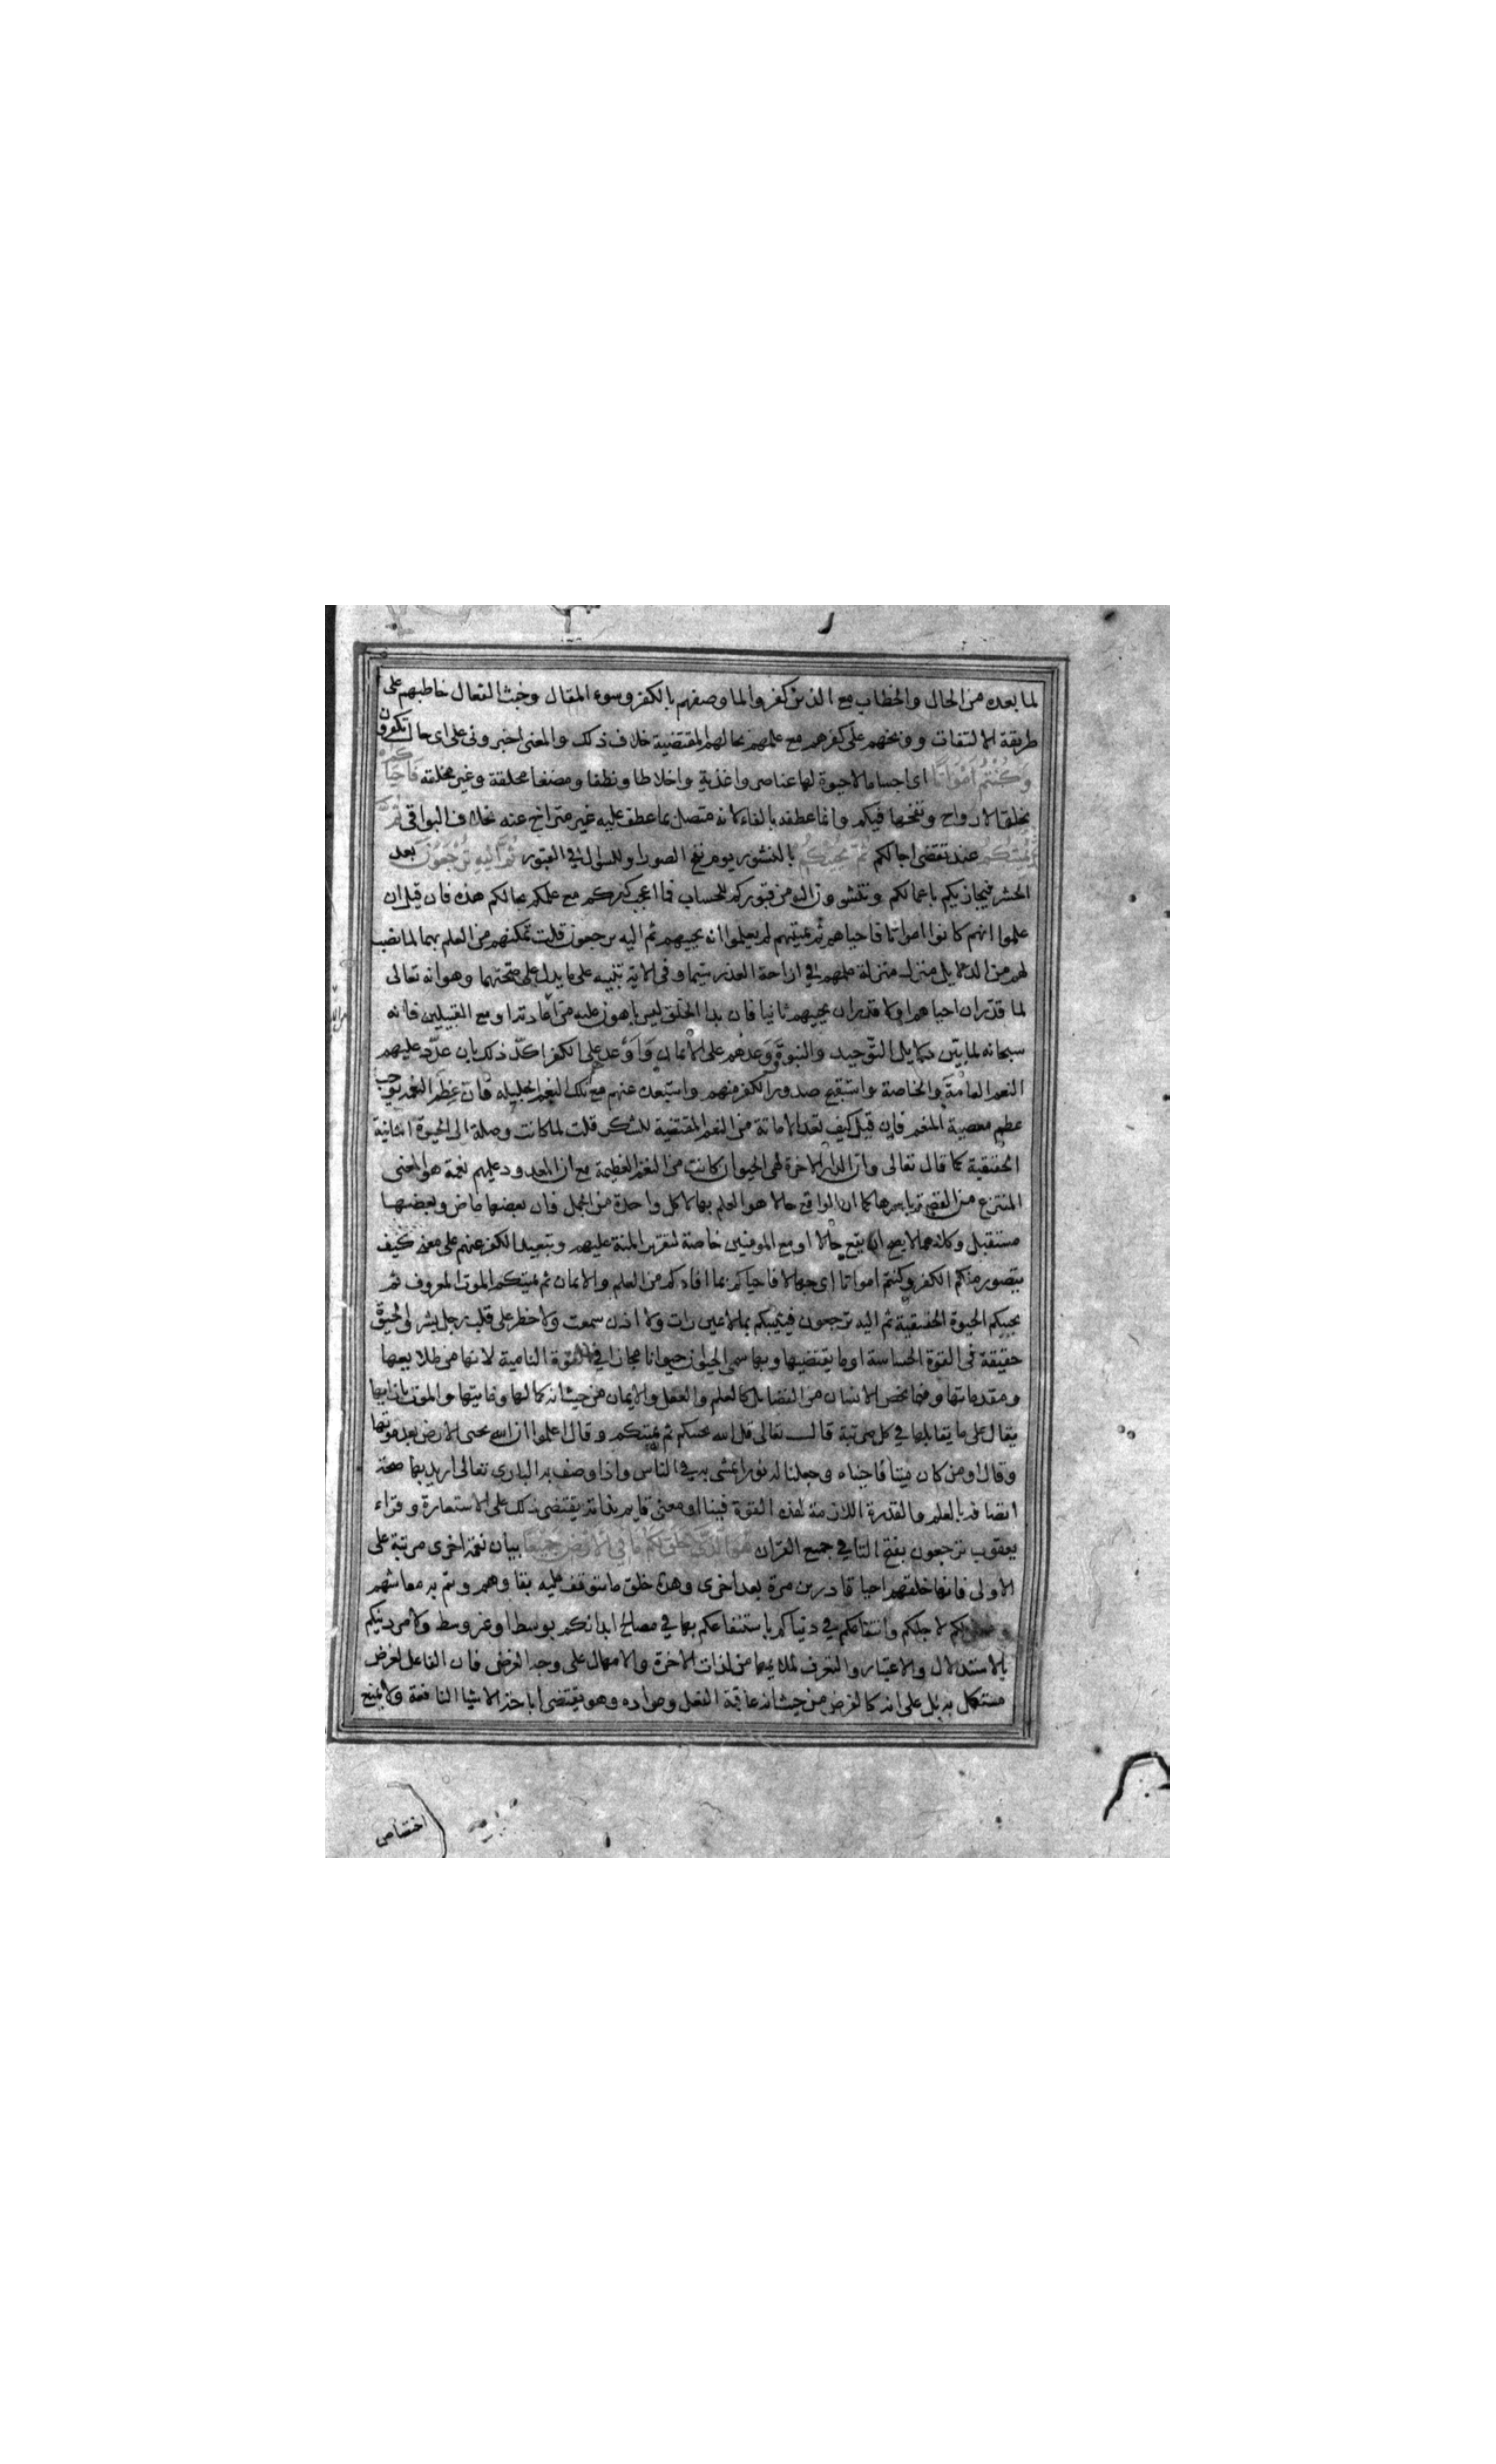 لما بعده من الحال والخطاب مع الذين كفروا لما وصفهم بالكفر وسوء المقال وخبث الفعال خاطبهم على
طريقة الالتفات ووبخهم على كفرهم مع علمهم بحالهم المقتضية خلاف ذلك والمعنى اخبروني على اى حال تكفرون
وَكُنْتُمْ اَمْوَاتًا اى اجساما لاحيوة لها عناصر واغذية واخلاطا ونطفا ومضغا مخلقة وغير مخلقة فَاَحْيَاكُمْ
بخلق الارواح ونفخها فيكم وانما عطفه بالفاء لانه متصل بما عطف عليه غير متراخ عنه بخلاف البواقى ثُمَّ
يُمِيتُكُمْ عند تقضى اجالكم ثُمَّ يُحْيِيكُمْ بالنشور يوم نفخ الصور او للسوال في القبور ثُمَّ اِلَيْهِ تُرْجَعُوْنَ بعد
الحشر فيجازيكم باعمالكم وتنشرون اليه من قبوركم للحساب فما اعجب كفركم مع علمكم بحالكم هذه فان قيل ان
علموا انهم كانوا امواتا فاحياهم ثم يميتهم لم يعلموا انه يحييهم ثم اليه يرجعون قلت تمكنهم من العلم بهما لما نصب
لهم من الدلايل منزل منزلة علمهم في ازاحة العذر سيما وفى الاية تنبيه على ما يدل على صحتهما وهو انه تعالى
لما قدر ان احياهم اولا قدر ان يحييهم ثانيا فان بدا الخلق ليس باهون عليه من اعادته او مع القبيلين فانه
سبحانه لما بيّن دلايل التوحيد والنبوة ووعدهم على الايمان واوعد على الكفر اكّد ذلك بان عدّد عليهم
النعم العامة والخاصة واستقبح صدور الكفر منهم واستبعده عنهم مع تلك النعم الجليله فان عظم النعمه يوجب
عظم معصية المنعم فان قيل كيف تعد الاماتة من النعم المقتضية للشكر قلت لما كانت وصلة الى الحيوة الثانية
الحقيقية كما قال تعالى وان الدار الاخرة لهى الحيوان كانت من النعم العظيمة مع ان المعدود عليهم نعمة هو المعنى
المنتزع من القصة باسرها كما ان الواقع حالا هو العلم بها لا كل واحدة من الجمل فان بعضها ماض وبعضها
مستقبل وكلاهما لا يصح ان يقع حالا او مع المومنين خاصة لتقرير المنة عليهم وتبعيد الكفر عنهم على معنى كيف
يتصور منكم الكفر وكنتم امواتا اى جهالا فاحياكم بما افادكم من العلم والايمان ثم يميتكم الموت المعروف ثم
يحييكم الحيوة الحقيقية ثم اليه ترجعون فيثيبكم بما لاعين رات ولا اذن سمعت ولا خطر على قلب رجل بشر الحيوة
حقيقة في القوة الحساسة او ما يقتضيها وبها سمى الحيوان حيوانا مجاز في القوة النامية لانها من طلايعها
ومقدماتها وفيما يخص الانسان من الفضايل كالعلم والعقل والايمان من حيث انه كمالها وغايتها والموت بازايها
يقال على ما يقابلها في كل مرتبة قال تعالى قل الله يحييكم ثم يميتكم وقال اعلموا ان الله يحيى الارض بعد موتها
وقال اومن كان ميتا فاحييناه وجعلنا له نورا يمشى به في الناس واذا وصف به البارى تعالى اريد بها صحة
اتصافه بالعلم والقدرة اللازمة لهذه القوة فينا او معنى قايم بذاته يقتضى ذلك على الاستعارة وقراء
يعقوب ترجعون بفتح التا في جميع القران هُوَ الَّذِيْ خَلَقَ لَكُمْ مَا فِي الْاَرْضِ جَمِيْعًا بيان نعمة اخرى مرتبة على
الاولى فانها خلقهم احيا قادرين مرة بعد اخرى وهذه خلق ما يتوقف عليه بقاوهم ويتم به معاشهم
ومعنى لكم لاجلكم وانتفاعكم في دنياكم باستنفاعكم بها في مصالح ابدانكم بوسط او غير وسط ولامر دينكم
بالاستدلال والاعتبار والتعرف لما يلايمها من لذات الاخرة والامها لا على وجه الغرض فان الفاعل لغرض
مستكمل به بل على انه كالغرض من حيث انه عاقبة الفعل ومواده وهو يقتضى اباحة الاشيا النافعة ولا يمنع
اختصاص